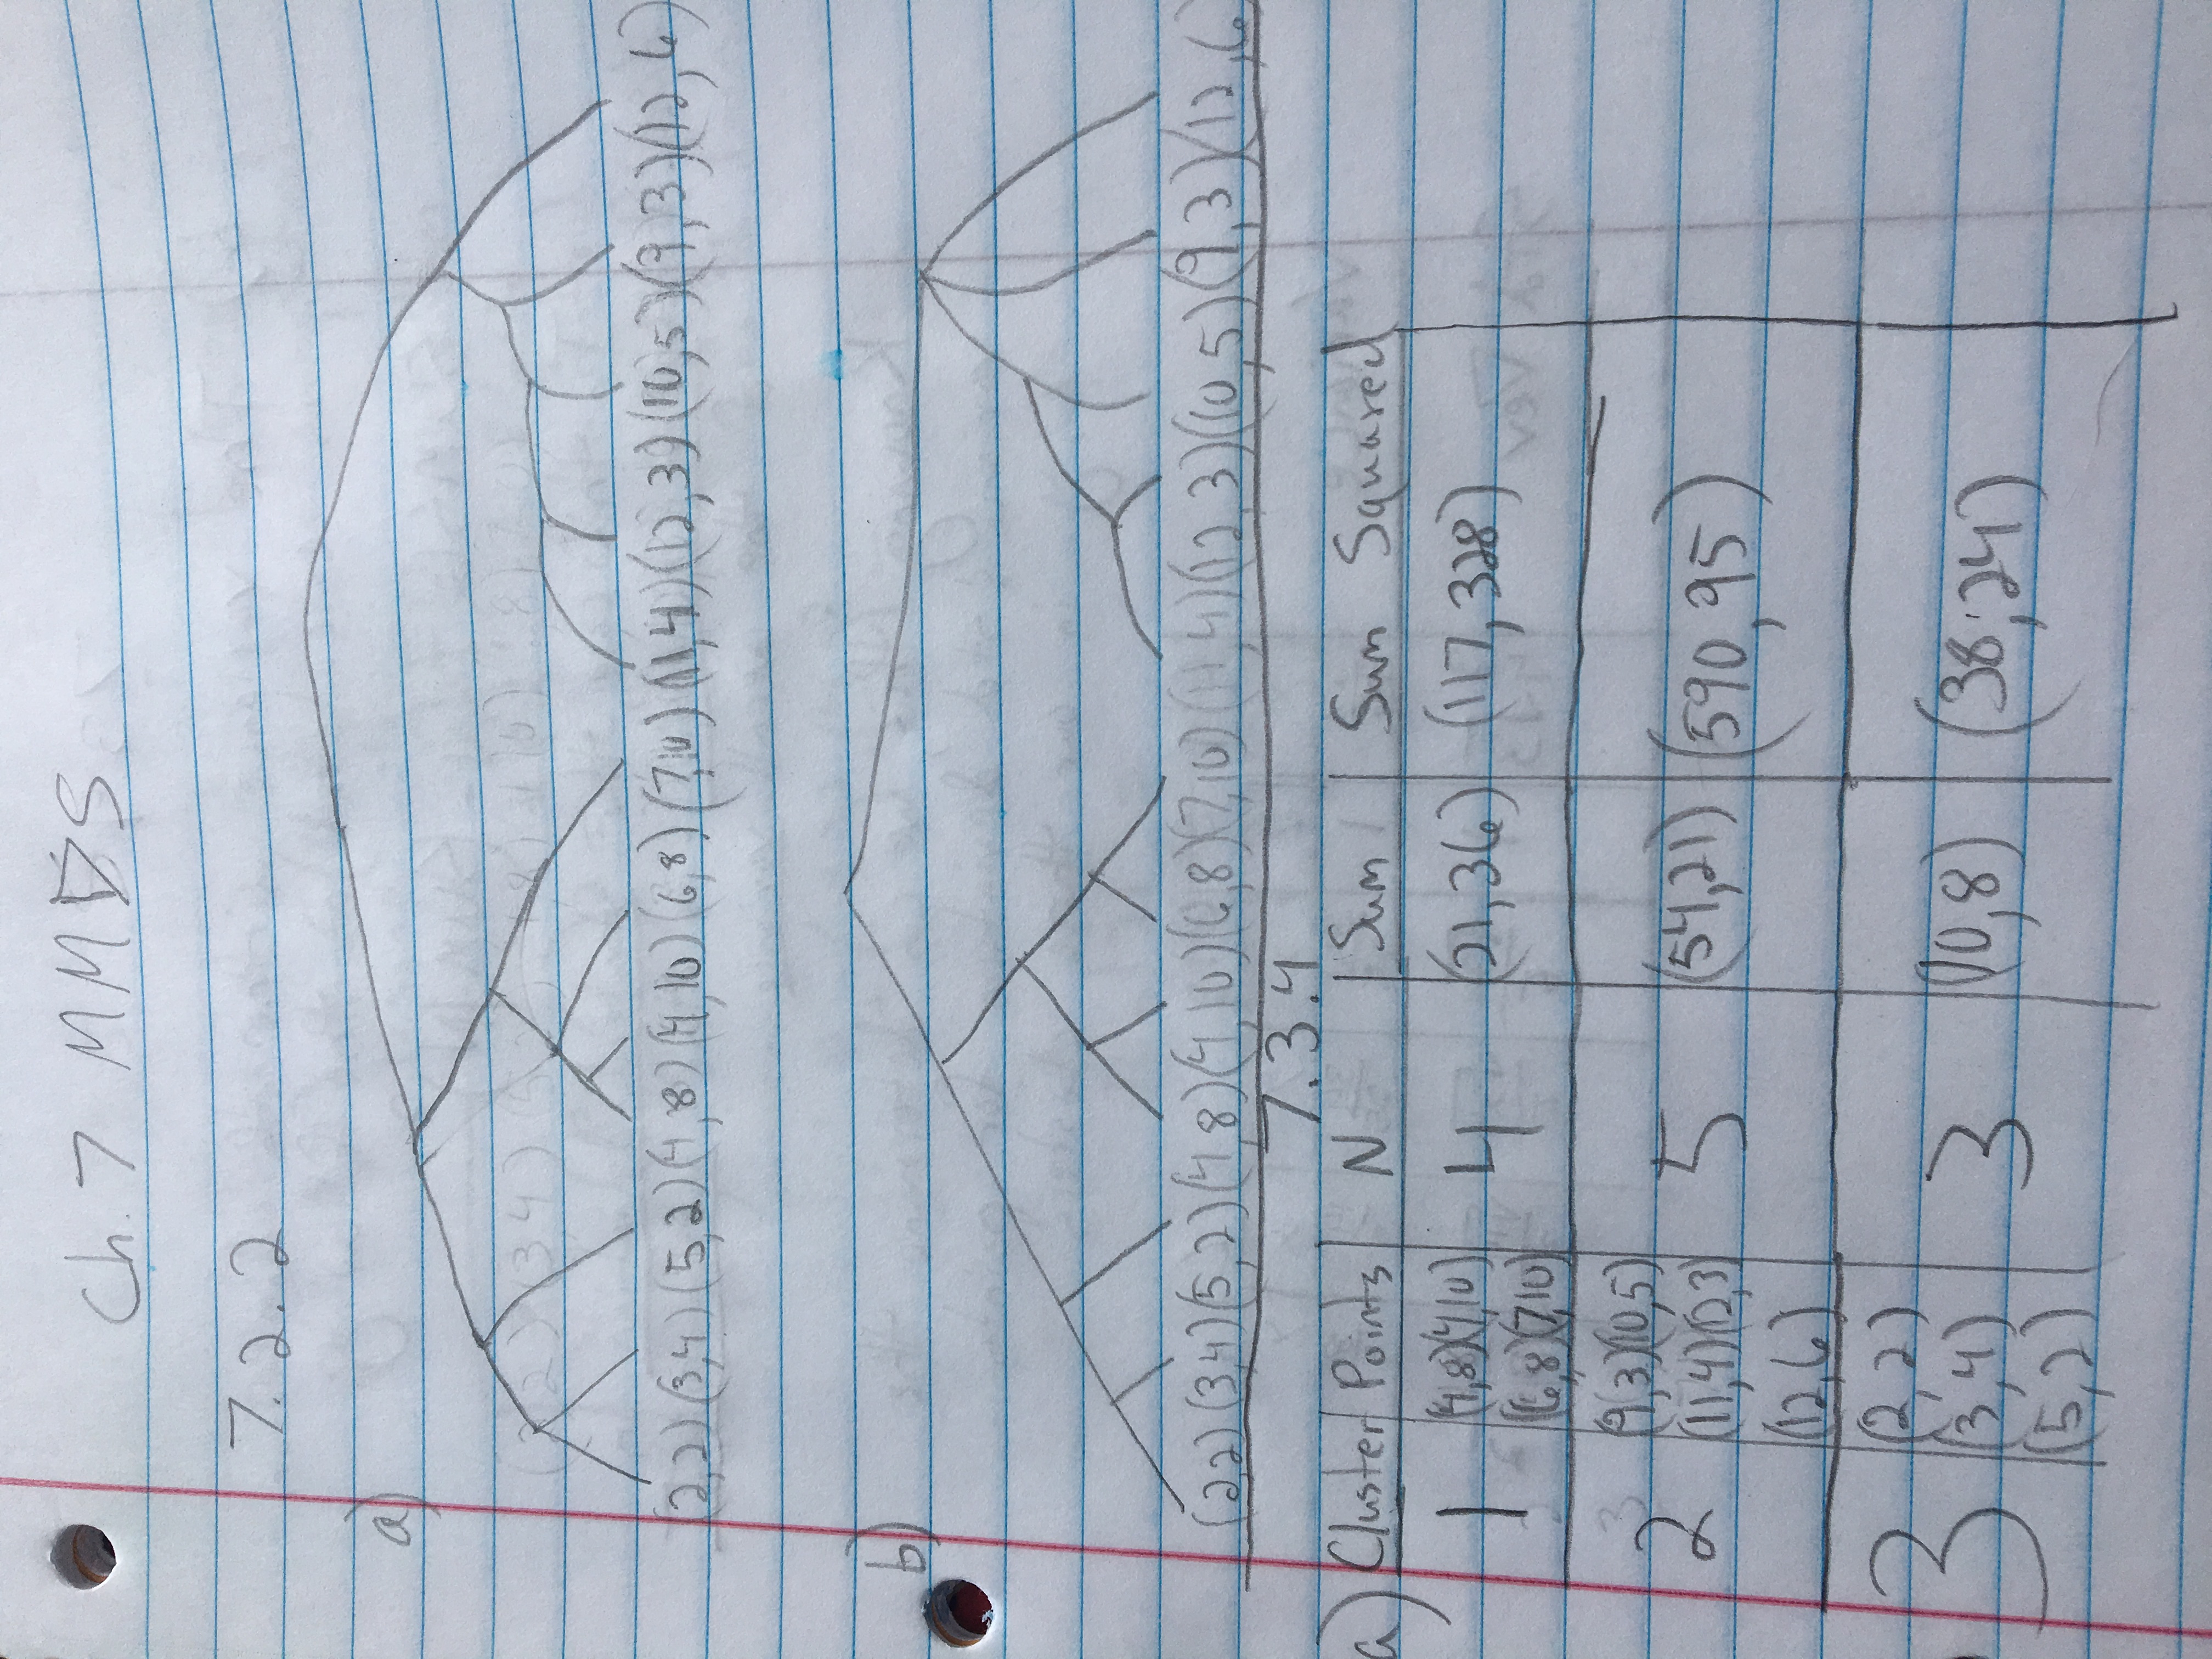 Ch. 7 MMDS
7.2.2
a)
(2,2) (3,4) (5,2) (4,8) (4,10) (6,8) (7,10) (11,4) (12,3) (10,5) (9,3) (12,6)
b)
(2,2) (3,4) (5,2) (4,8) (4,10) (6,8) (7,10) (11,4) (12,3) (10,5) (9,3) (12,6)
7.3.4
a) Cluster Points N Sum Sum Squared
(4,8)(4,10)
1 4 (21,36) (117,328)
(6,8)(7,10)
(9,3)(10,5)
2 (11,4)(12,3) 5 (54,21) (590,95)
(12,6)
(2,2)
3 (3,4) 3 (10,8) (38,24)
(5,2)